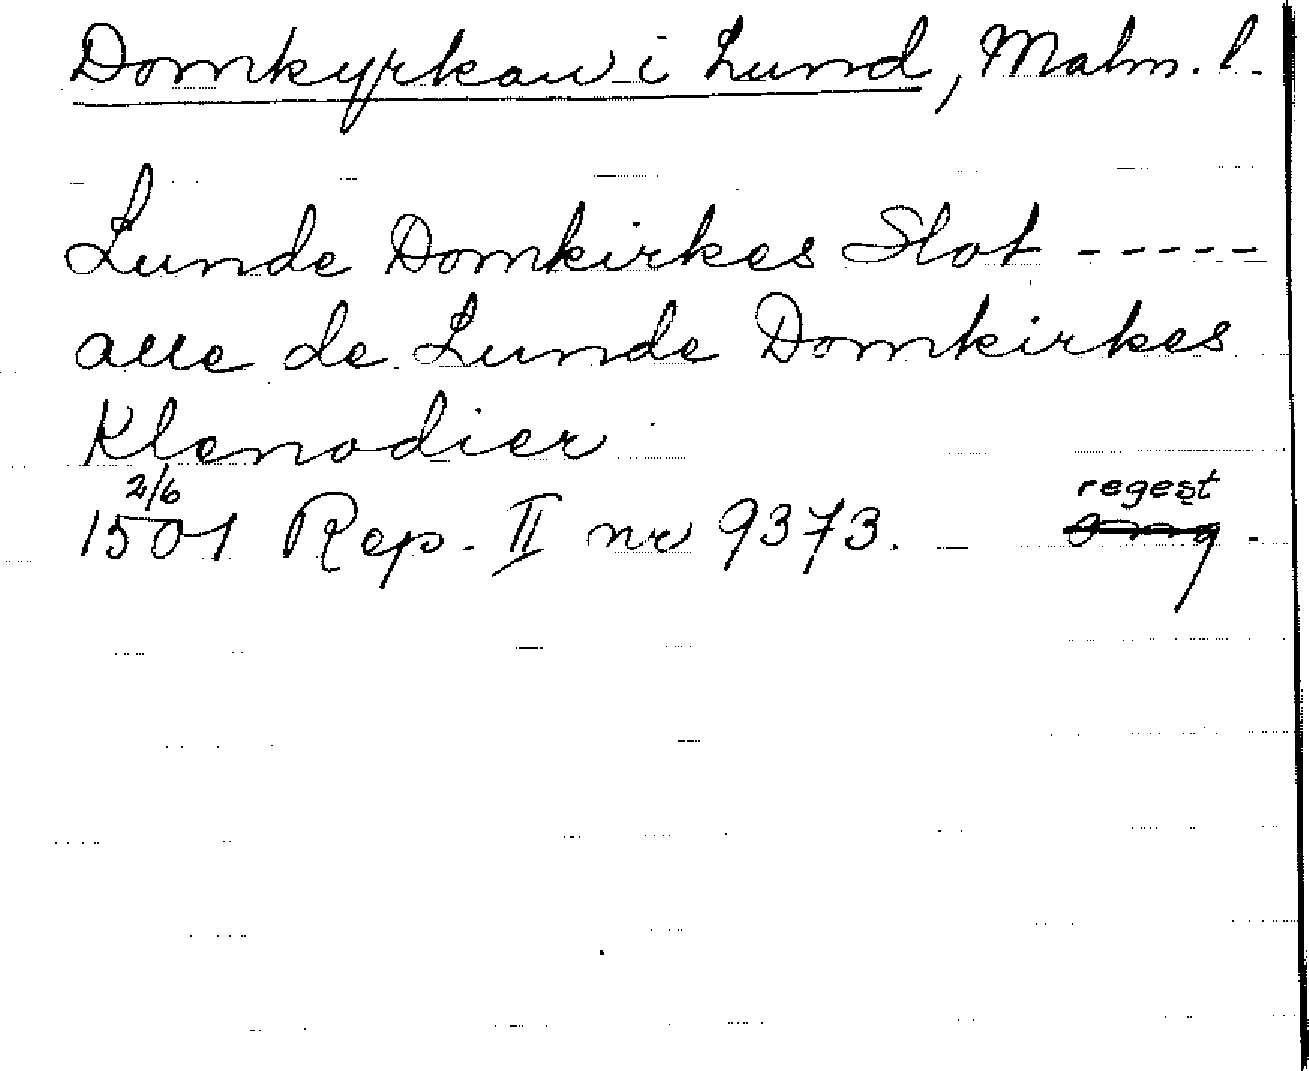 Domkyrkan i Lund, Malm. l.
Lunde Domkirkes Slot -----
alle de Lunde Domkirkes
Klenodier
2/6 regest
1501 Rep. II nr 9373. -